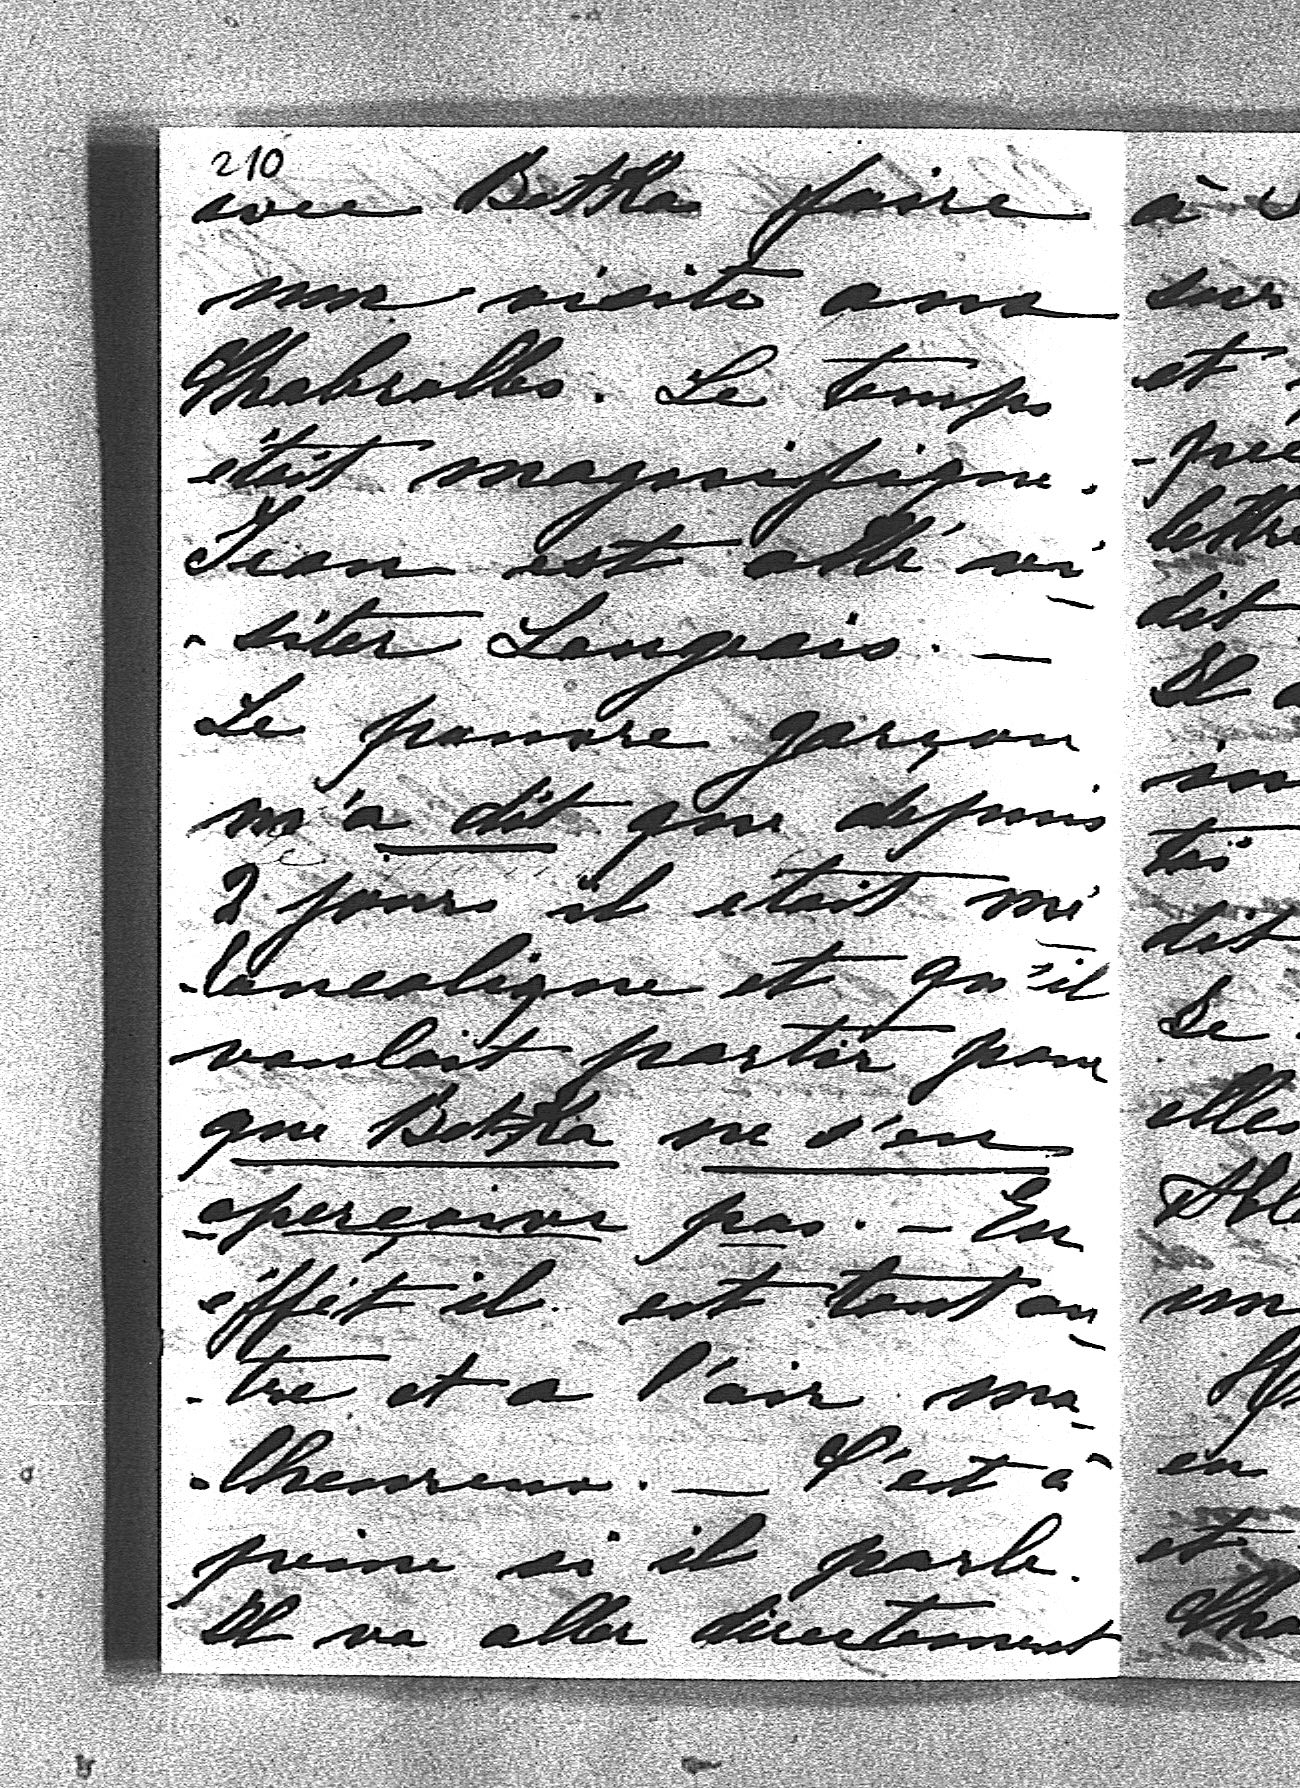 210
avec Betka faire
mon visite aux
Chabrolles. Le temps
était magnifique.
Jean est allé vi-
-siter Langeais. —
Le pauvre garçon
m'a dit que depuis
2 jours il était mé-
-lancolique et qu'il
voulait partir pour
que Betka ne s'en
-aperçoive pas. — En
éffét il est tout au-
-tre et a l'air ma-
-lheureux. — C'est à
peine si il parle.
Il va aller directement
à
sur
et
lettre
dit
Il
dit
Le
elles
en
et